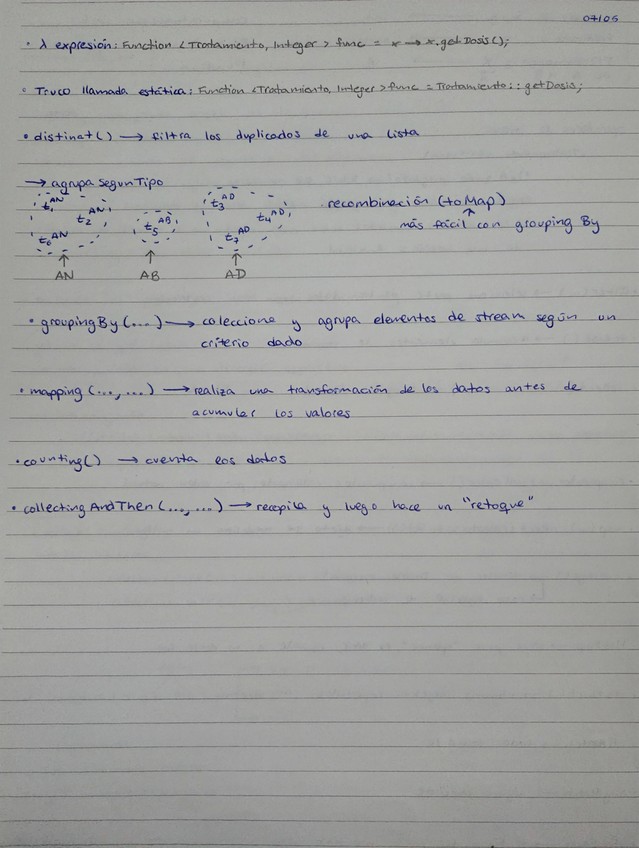 07/05
• λ expresión: Function <Tratamiento, Integer> func = x → x.getDosis();
• Truco llamada estática: Function <Tratamiento, Integer> func = Tratamiento::getDosis;
• distinct() → filtra los duplicados de una lista
→ agrupa según Tipo
t₁ᴬᴺ t₂ᴬᴺ t₆ᴬᴺ t₅ᴬᴮ t₃ᴬᴰ t₄ᴬᴰ t₇ᴬᴰ recombinación (toMap)
↑ más fácil con groupingBy
↑ ↑ ↑
AN AB AD
• groupingBy(...) → colecciona y agrupa elementos de stream según un
criterio dado
• mapping (..., ...) → realiza una transformación de los datos antes de
acumular los valores
• counting() → cuenta los datos
• collectingAndThen (..., ...) → recopila y luego hace un "retoque"